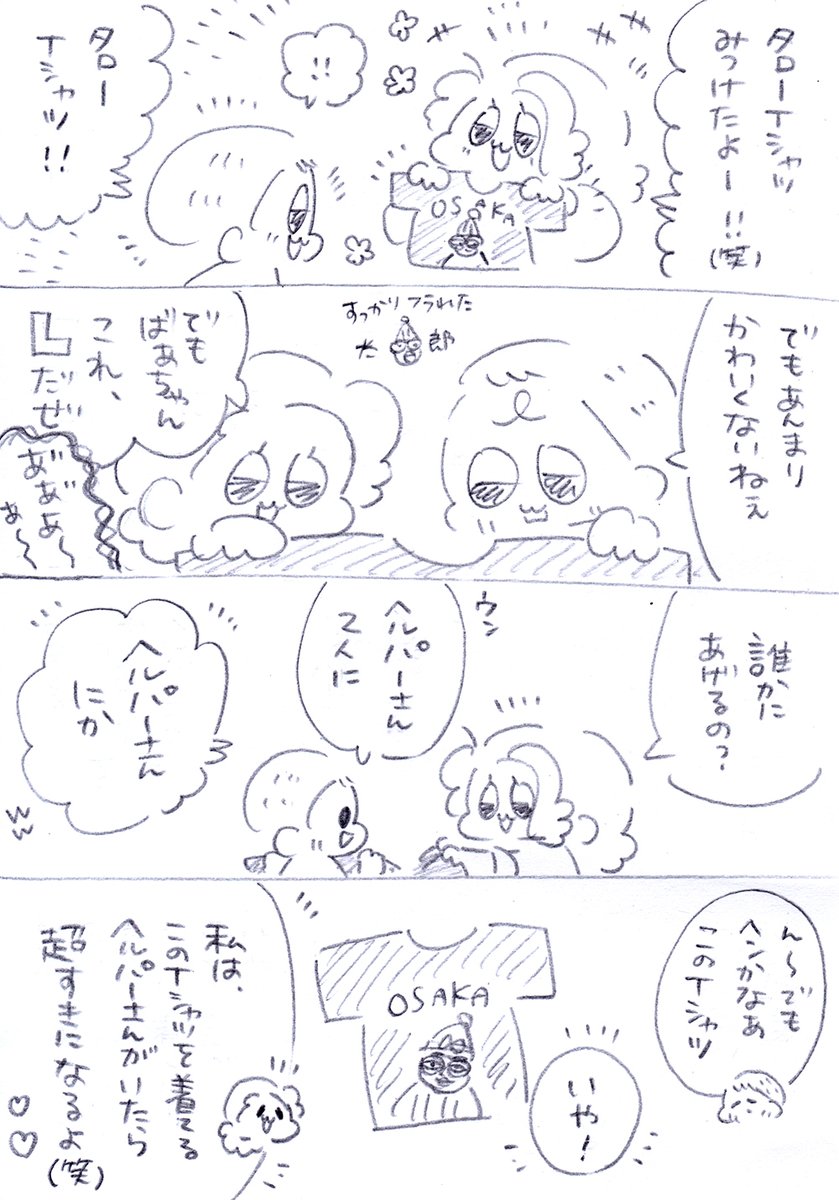 タローTシャツ
みつけたよー!!
(笑)
!!
OSAKA
タロー
Tシャツ!!
でもあんまり
かわいくないねぇ
すっかりフラれた
太郎
でも
ばあちゃん
これ、
Lだぜ
あ゛あ゛あ〜
あ〜
誰かに
あげるの?
ウン
ヘルパーさん
2人に
ヘルパーさん
にか
ん〜でも
ヘンかなあ
このTシャツ
いや!
OSAKA
私は、
このTシャツを着てる
ヘルパーさんがいたら
超すきになるよ
(笑)